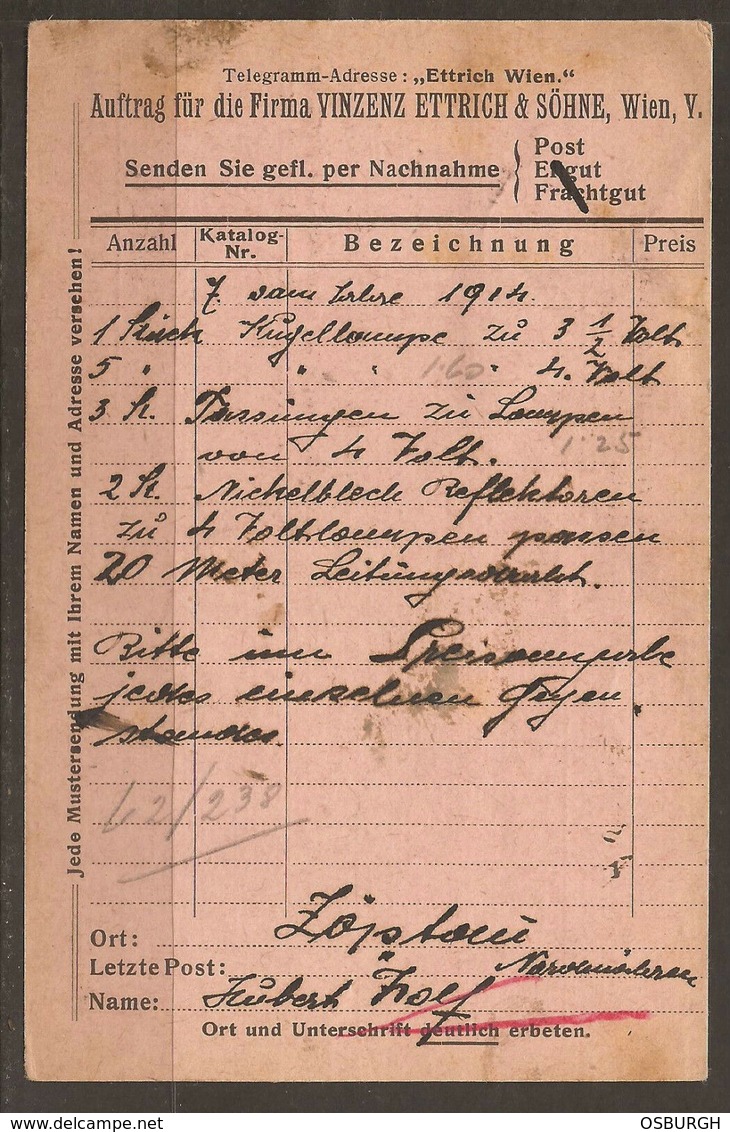 Telegramm-Adresse: „Ettrich Wien."
Auftrag für die Firma VINZENZ ETTRICH & SÖHNE, Wien, V.
Senden Sie gefl. per Nachnahme
Post
Eilgut
Frachtgut
Jede Mustersendung mit Ihrem Namen und Adresse versehen!
Anzahl Katalog-Nr. Bezeichnung Preis
7 vom Jahre 1914.
1 Stück Kugellampe zu 3 1/2 Volt
5 " " " 1·60 " 4. Volt
3 St. Fassungen zu Lampen
von 4 Volt. 1·25
2 St. Nickelblech Reflektoren
zu 4 Voltlampen passen
20 Meter Leitungsdraht.
Bitte um Preisangabe
jedes einzelnen Gegen
standes.
62/238
Ort: Zöptau
Letzte Post: " Nordmähren
Name: Hubert Wolf
Ort und Unterschrift deutlich erbeten.
OSBURGH